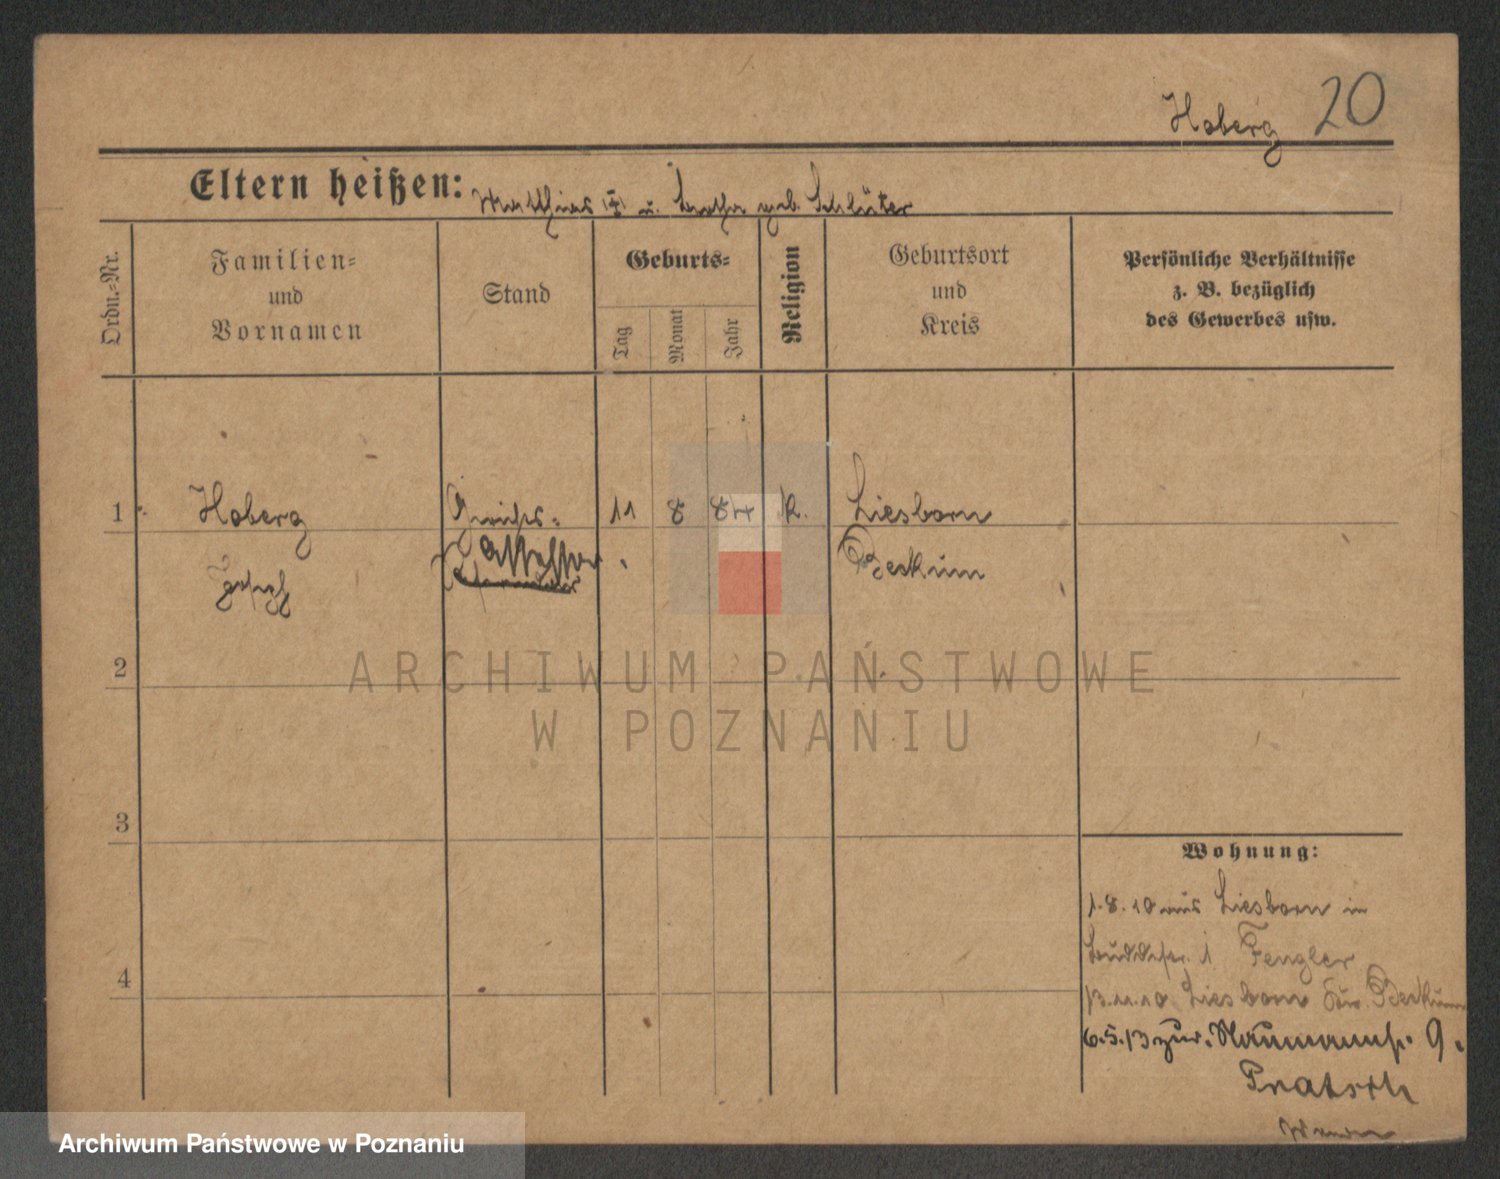 Hoberg 20
Eltern heißen: Matthias u. geb. Schlüter
Ordn.-Nr.
Familien-
und
Vornamen
Stand
Geburts-
Tag
Monat
Jahr
Religion
Geburtsort
und
Kreis
Persönliche Verhältnisse
z. B. bezüglich
des Gewerbes usw.
1 Hoberg Gerichts- 11 8 84 k. Liesborn
Josef Assessor Beckum
2
3
4
Wohnung:
1.8.10 aus Liesborn in
1 Fengler
13.11.10 Liesborn Beckum
6.5.13 zur. Naumannstr. 9.
ARCHIWUM PAŃSTWOWE
W POZNANIU
Archiwum Państwowe w Poznaniu